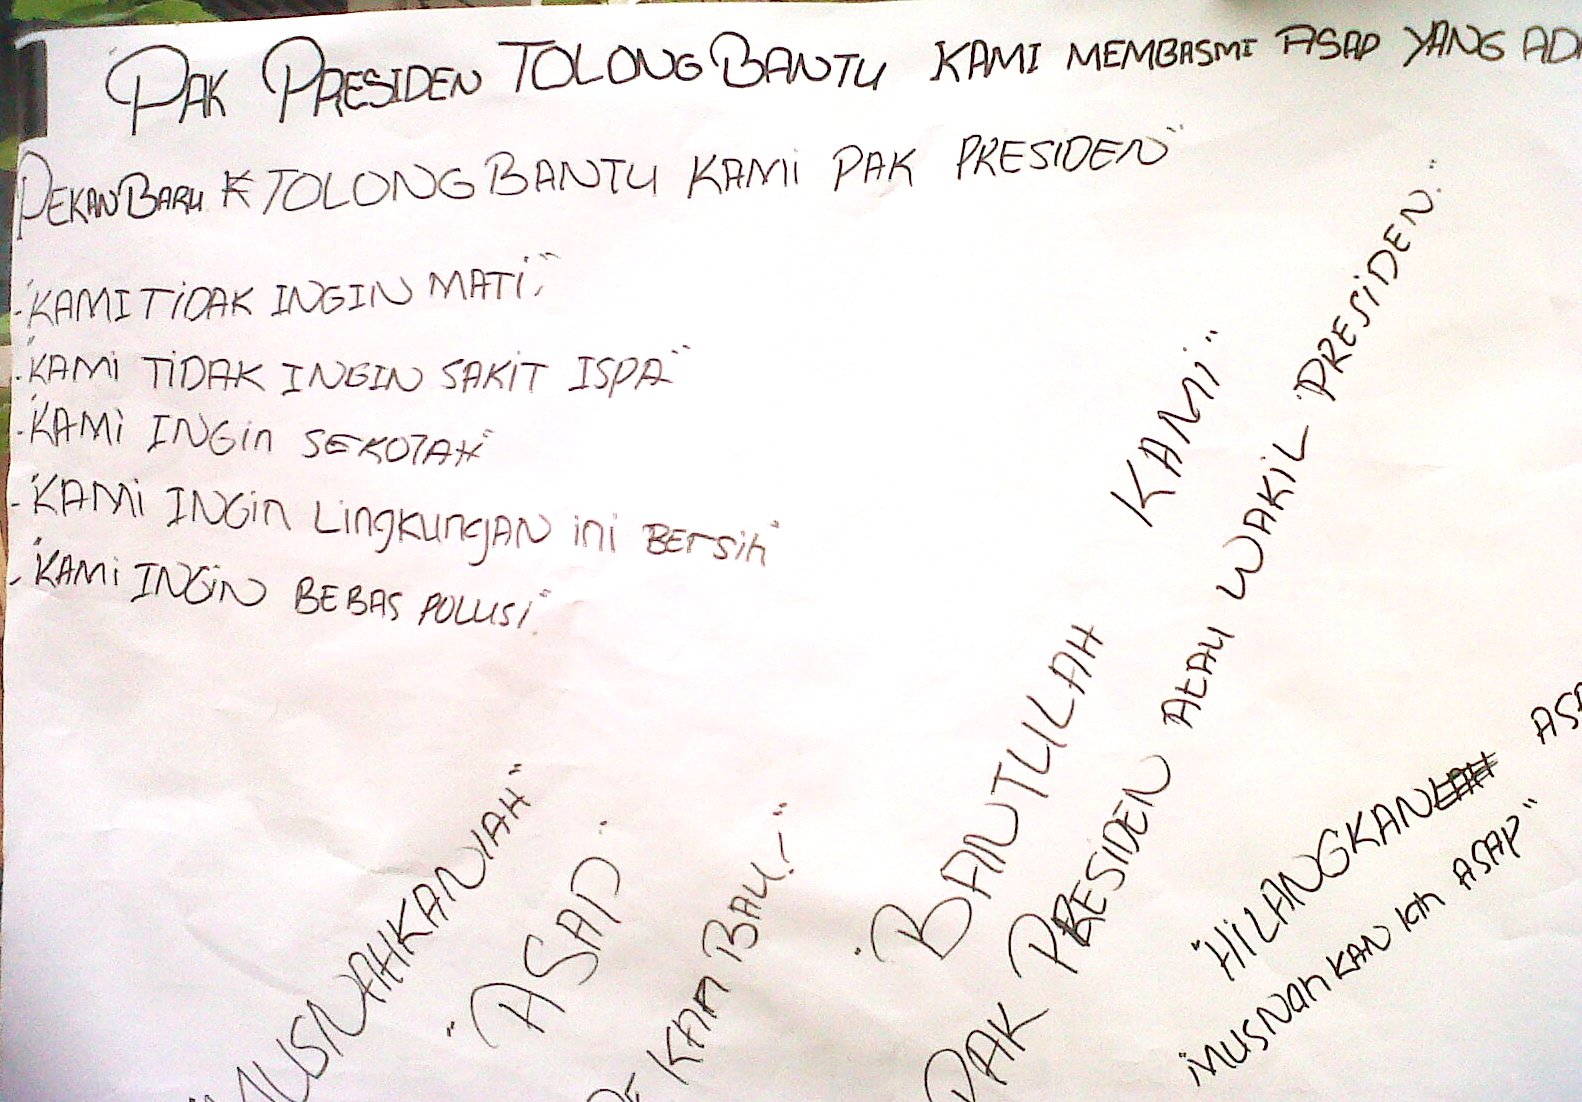 "PAK PRESIDEN TOLONG BANTU KAMI MEMBASMI ASAP YANG AD
PEKANBARU TOLONG BANTU KAMI PAK PRESIDEN"
-"KAMI TIDAK INGIN MATI,"
-"KAMI TIDAK INGIN SAKIT ISPA"
-"KAMI INGin SEKOLAH"
-"KAMI INGin LingKungAN ini BErSih"
-"KAMi INGiN BEBAS POLUSI"
"MUSNAHKANLAH"
"ASAP"
PE KAn BAU!"
"BANTULAH KAMi"
PAK PRESIDEN AtAU WAKiL PRESiDEN."
"HiLANGKAN ASA
MUSNahKAN lah ASAP"